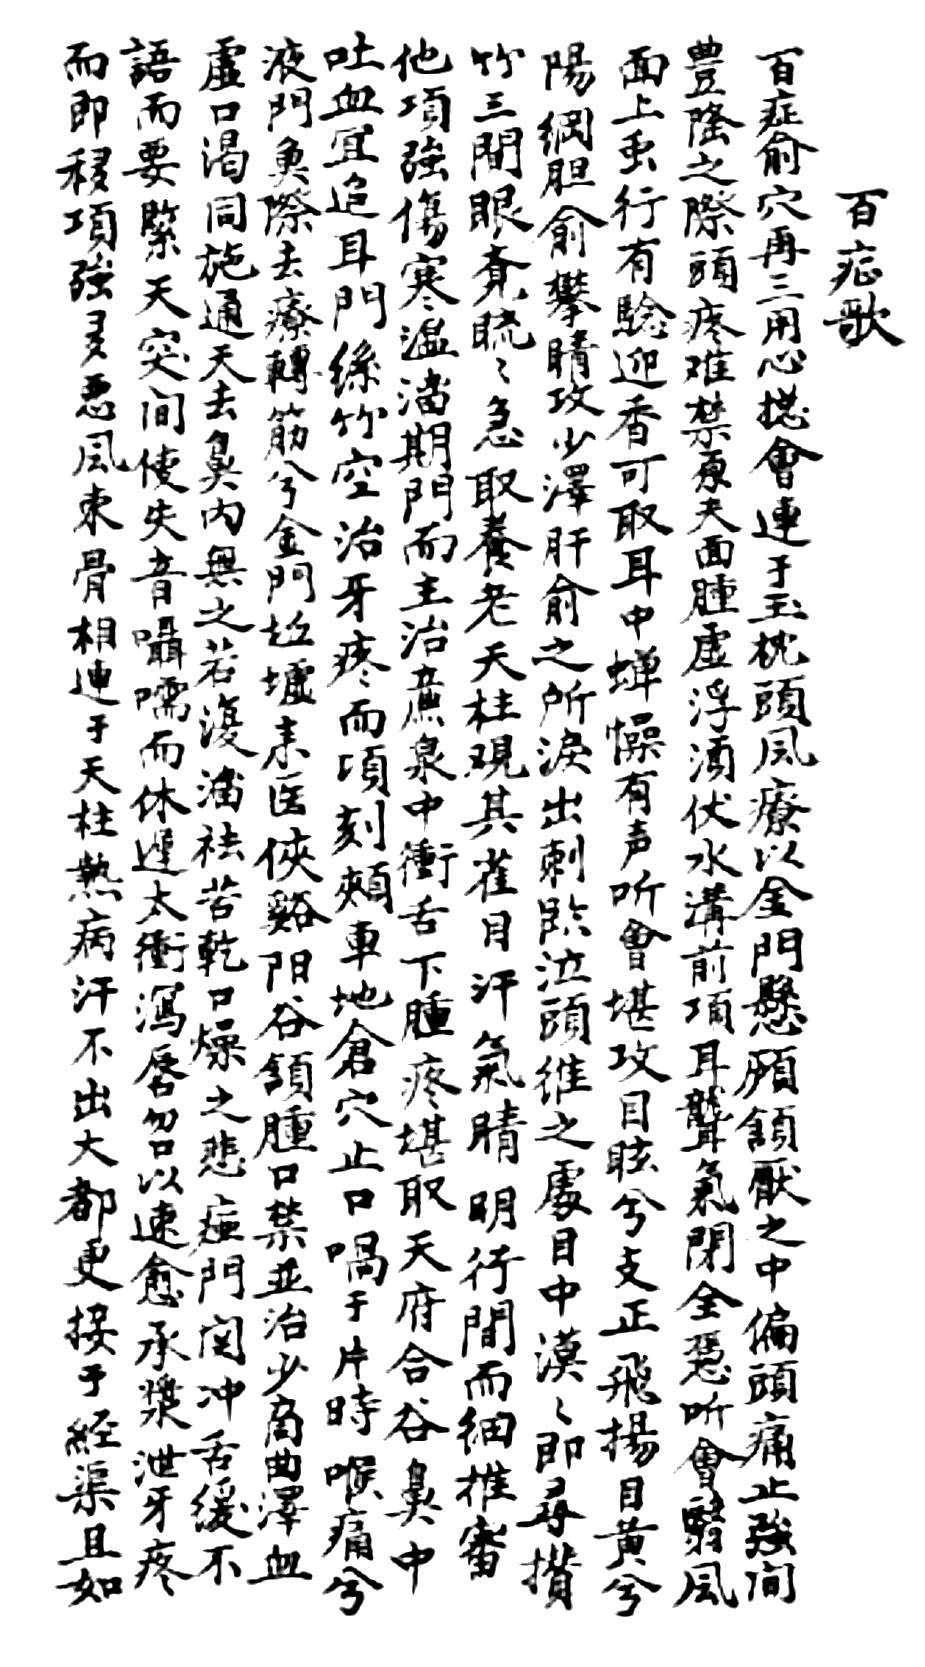 百症歌
百症俞穴再三用心搃會連于玉枕頭風療以金門懸顱頷厭之中偏頭痛止強间
豊隆之際頭疼难禁原夫面腫虛浮湏伏水溝前項耳聾氣閉全憑听會翳風
面上虫行有騐迎香可取耳中蟬懆有声听會堪攻目眩兮支正飛揚目黄兮
陽綱胆俞攀睛攻少澤肝俞之所淚出刺臨泣頭維之處目中漠〻即尋攅
竹三間眼𥆨䀮〻急取養老天柱观其雀目汗氣睛明行間而细推審
他項強傷寒温滀期門而主治廉泉中衝舌下腫疼堪取天府合谷鼻中
吐血宜追耳門絲竹空治牙疼而項刻頰車地倉穴止口喎于片時喉痛兮
液門魚際去療轉筋兮金門坵墟耒医俠谿阳谷頷腫口禁並治少商曲澤血
虛口渴同施通天去鼻内無之若復滀祛苦乾口燥之悲瘂門関冲舌缓不
語而要緊天突间使失音囁嚅而休遲太衝瀉唇㖞以速愈承漿泄牙疼
而即移項強多悪風束骨相連于天柱熱病汗不出大都更接于經渠且如